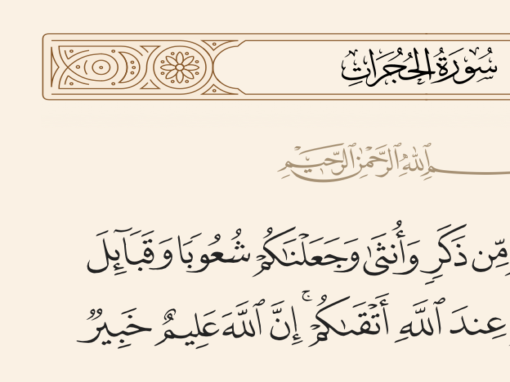 سُورَةُ الْحُجُرَاتِ
ـمِ ٱللَّهِ ٱلرَّحْمَٰنِ ٱلرَّحِيمِ
مِّن ذَكَرٍ وَأُنثَىٰ وَجَعَلْنَٰكُمْ شُعُوبًا وَقَبَآئِلَ
عِندَ ٱللَّهِ أَتْقَىٰكُمْ ۚ إِنَّ ٱللَّهَ عَلِيمٌ خَبِيرٌ